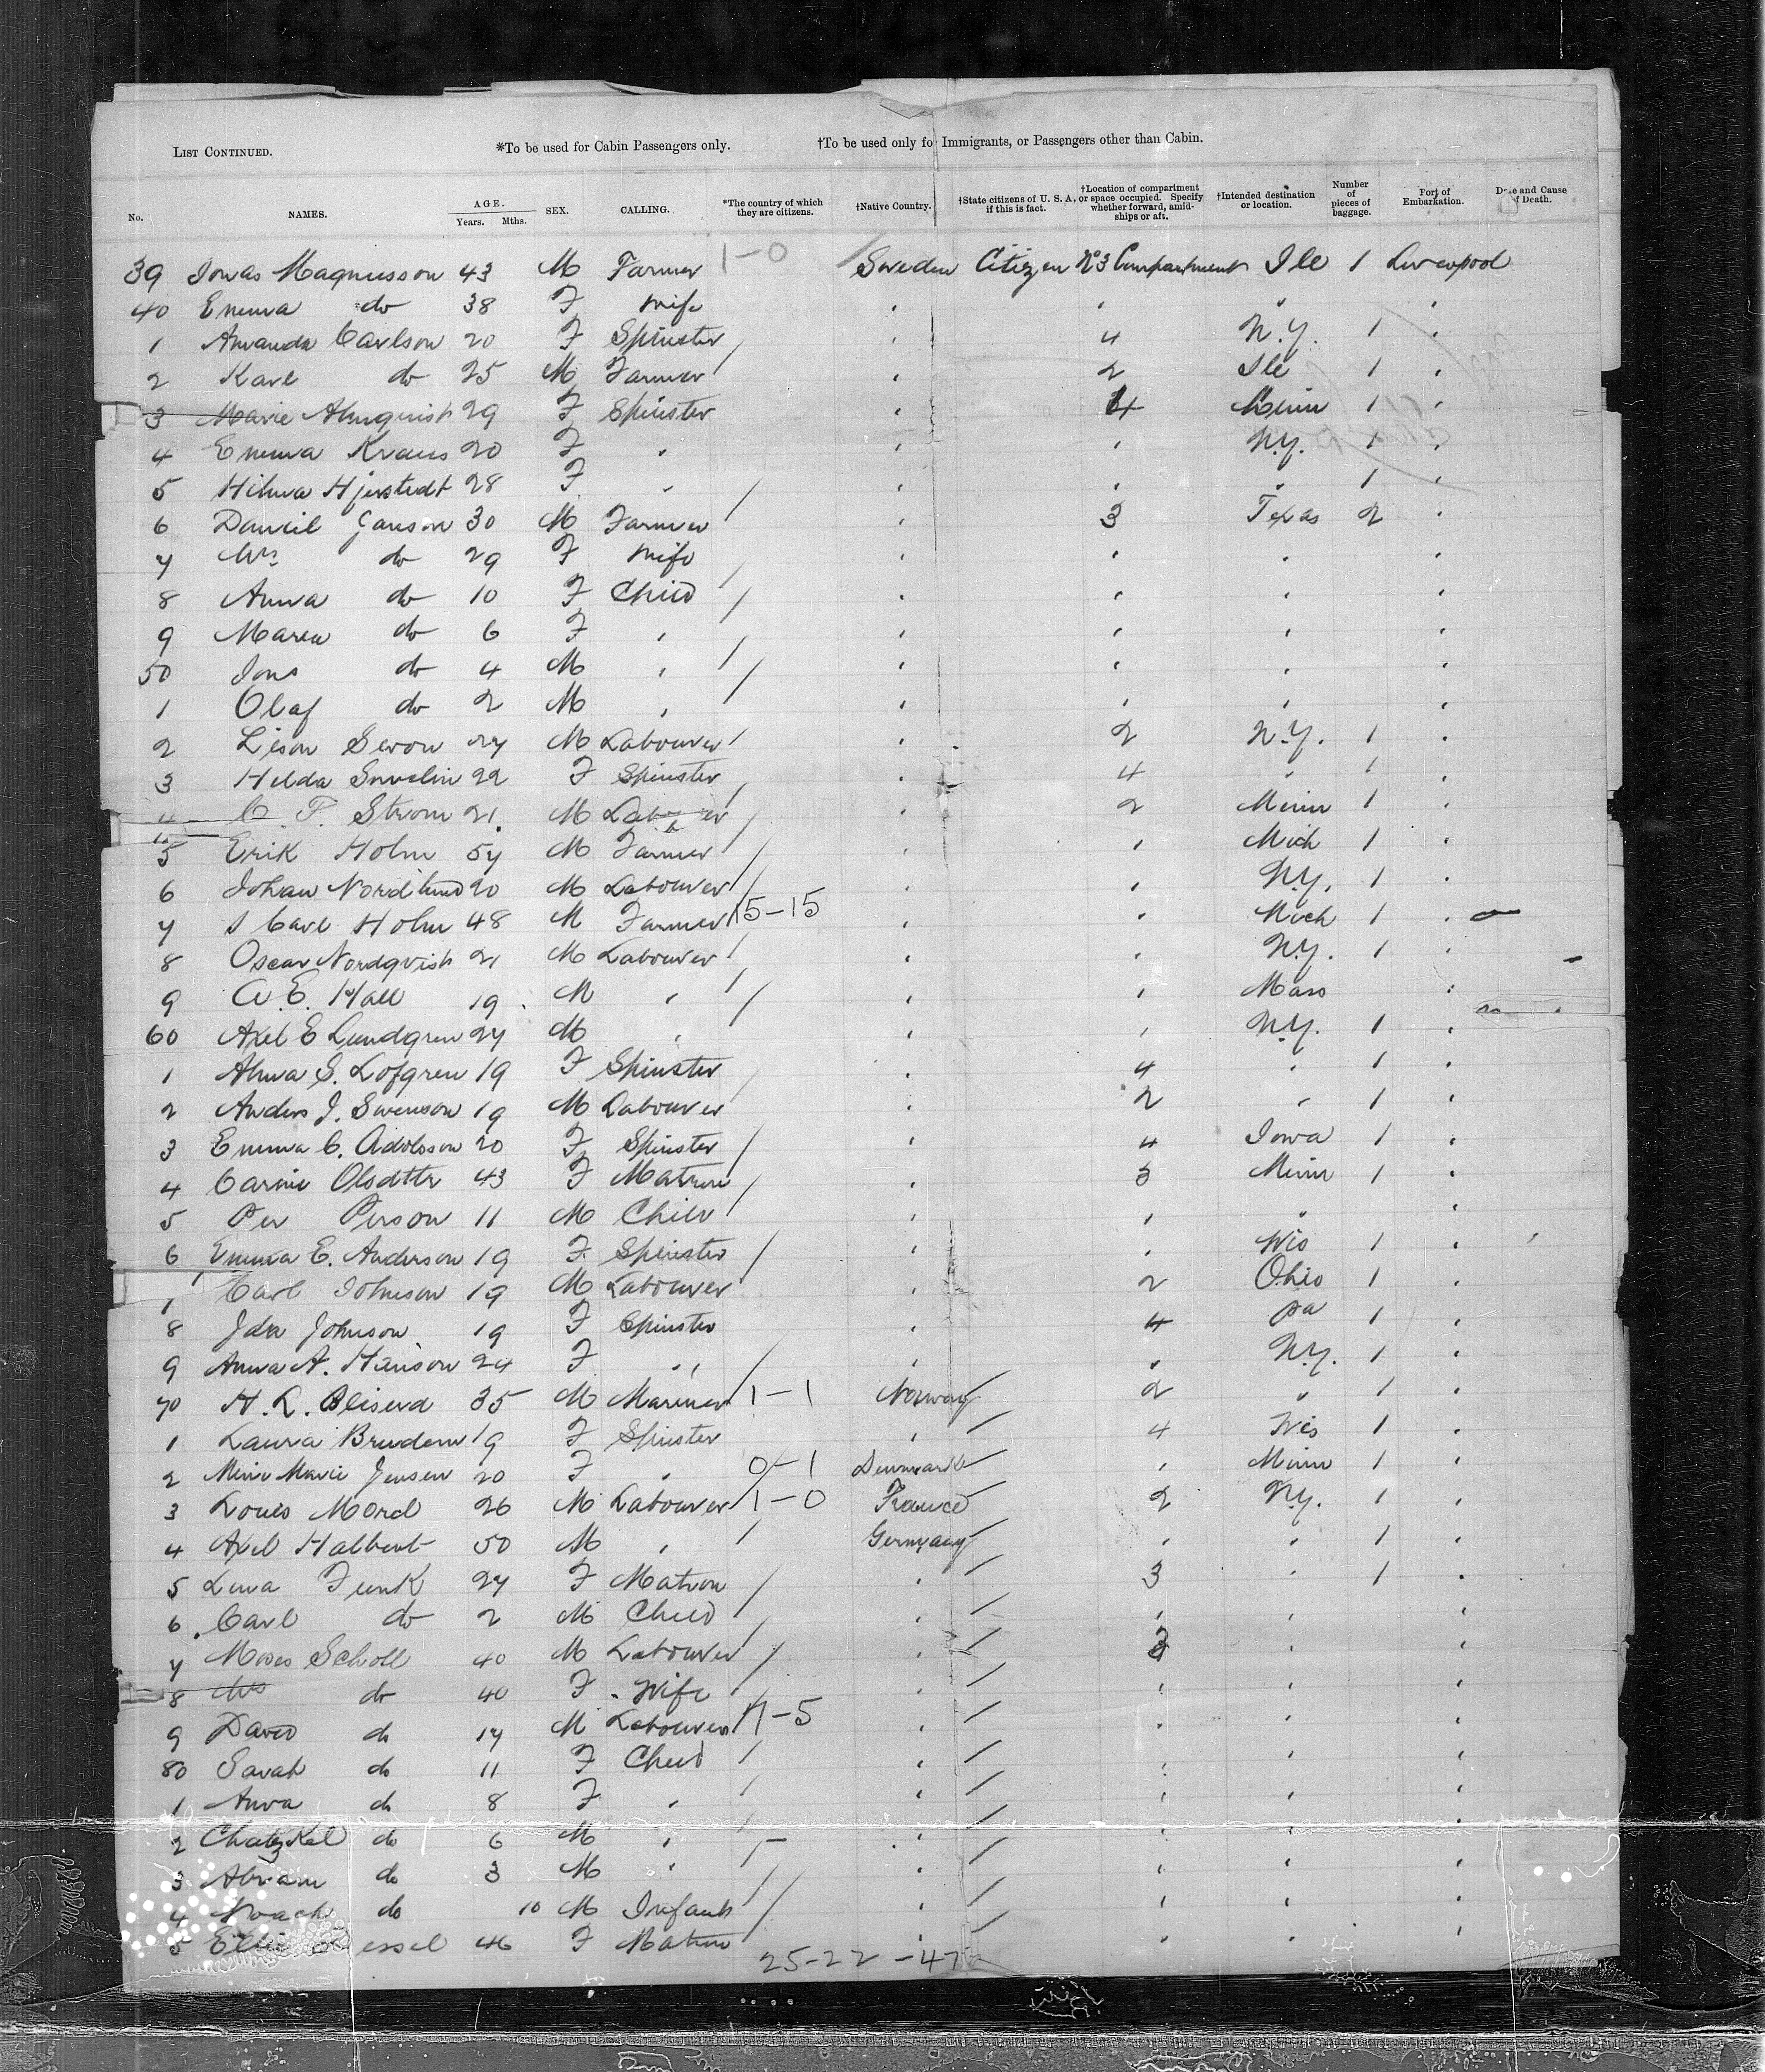 LIST CONTINUED. *To be used for Cabin Passengers only. †To be used only for Immigrants, or Passengers other than Cabin.
No. NAMES. AGE. Years. Mths. SEX. CALLING. *The country of which they are citizens. †Native Country. †State citizens of U. S. A. if this is fact. †Location of compartment or space occupied. Specify whether forward, amidships or aft. †Intended destination or location. Number of pieces of baggage. Port of Embarkation. Date and Cause of Death.
39 Jonas Magnusson 43 M Farmer 1-0 Sweden Citizen No 3 Compartment Ile 1 Liverpool
40 Emma do 38 F Wife " " " "
1 Amanda Carlson 20 F Spinster " 4 N.Y. 1 "
2 Karl do 25 M Farmer " 2 Ile 1 "
3 Marie Almquist 29 F Spinster " 4 Minn 1 "
4 Emma Kraus 20 F " " " N.Y. 1 "
5 Hilma Hjerstedt 28 F " " " " 1 "
6 Daniel Janson 30 M Farmer " 3 Texas 2 "
7 Mrs do 29 F Wife " " " "
8 Anna do 10 F Child " " " "
9 Maria do 6 F " " " " "
50 Jons do 4 M " " " " "
1 Olaf do 2 M " " " " "
2 27 M Labourer " 2 N.Y. 1 "
3 Hilda 22 F Spinster " 4 " 1 "
4 C. P. Strom 21 M Labourer " 2 Minn 1 "
5 Erik Holm 57 M Farmer " " Mich 1 "
6 Johan Nordlund 20 M Labourer " " N.Y. 1 "
7 Carl Holm 48 M Farmer 15-15 " " Mich 1 "
8 Oscar Nordqvist 21 M Labourer " " N.Y. 1 "
9 A. E. Hall 19 M " " " Mass "
60 Axel E Lundgren 27 M " " " N.Y. 1 "
1 Alma S. Lofgren 19 F Spinster " 4 " 1 "
2 Anders J. Swenson 19 M Labourer " 2 " 1 "
3 Emma C. Adolsson 20 F Spinster " 4 Iowa 1 "
4 Carin Olsdtter 43 F Matron " 3 Minn 1 "
5 Per Person 11 M Child " " " "
6 Emma E. Anderson 19 F Spinster " " Wis 1 "
7 Carl Johnson 19 M Labourer " 2 Ohio 1 "
8 Ida Johnson 19 F Spinster " 4 Pa 1 "
9 Anna A. Hanson 24 F " " " N.Y. 1 "
70 H. L. 35 M Mariner 1-1 Norway 2 " 1 "
1 Laura 19 F Spinster " 4 Wis 1 "
2 Marie Jensen 20 F " 0-1 Denmark " Minn 1 "
3 Louis Mord 26 M Labourer 1-0 France 2 N.Y. 1 "
4 Axel Halbert 50 M " Germany " " 1 "
5 Lina Funk 27 F Matron " 3 " 1 "
6 Carl do 2 M Child " " " "
7 Moses Scholl 40 M Labourer " 3 " "
8 Mrs do 40 F Wife " " " "
9 David do 17 M Labourer 7-5 " " " "
80 Sarah do 11 F Child " " " "
1 Anna do 8 F " " " " "
2 Chatzkel do 6 M " " " " "
3 Abram do 3 M " " " " "
4 Noach do 10 M Infant " " " "
5 46 F Matron " " " "
25-22-47